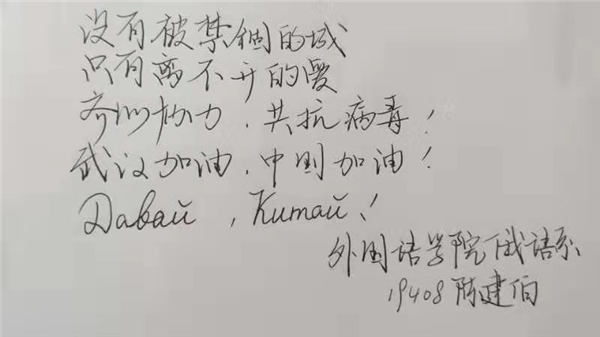 没有被禁锢的城
只有离不开的爱
齐心协力，共抗病毒！
武汉加油，中国加油！
Давай，Китай！
外国语学院俄语系
19408 陈建伯